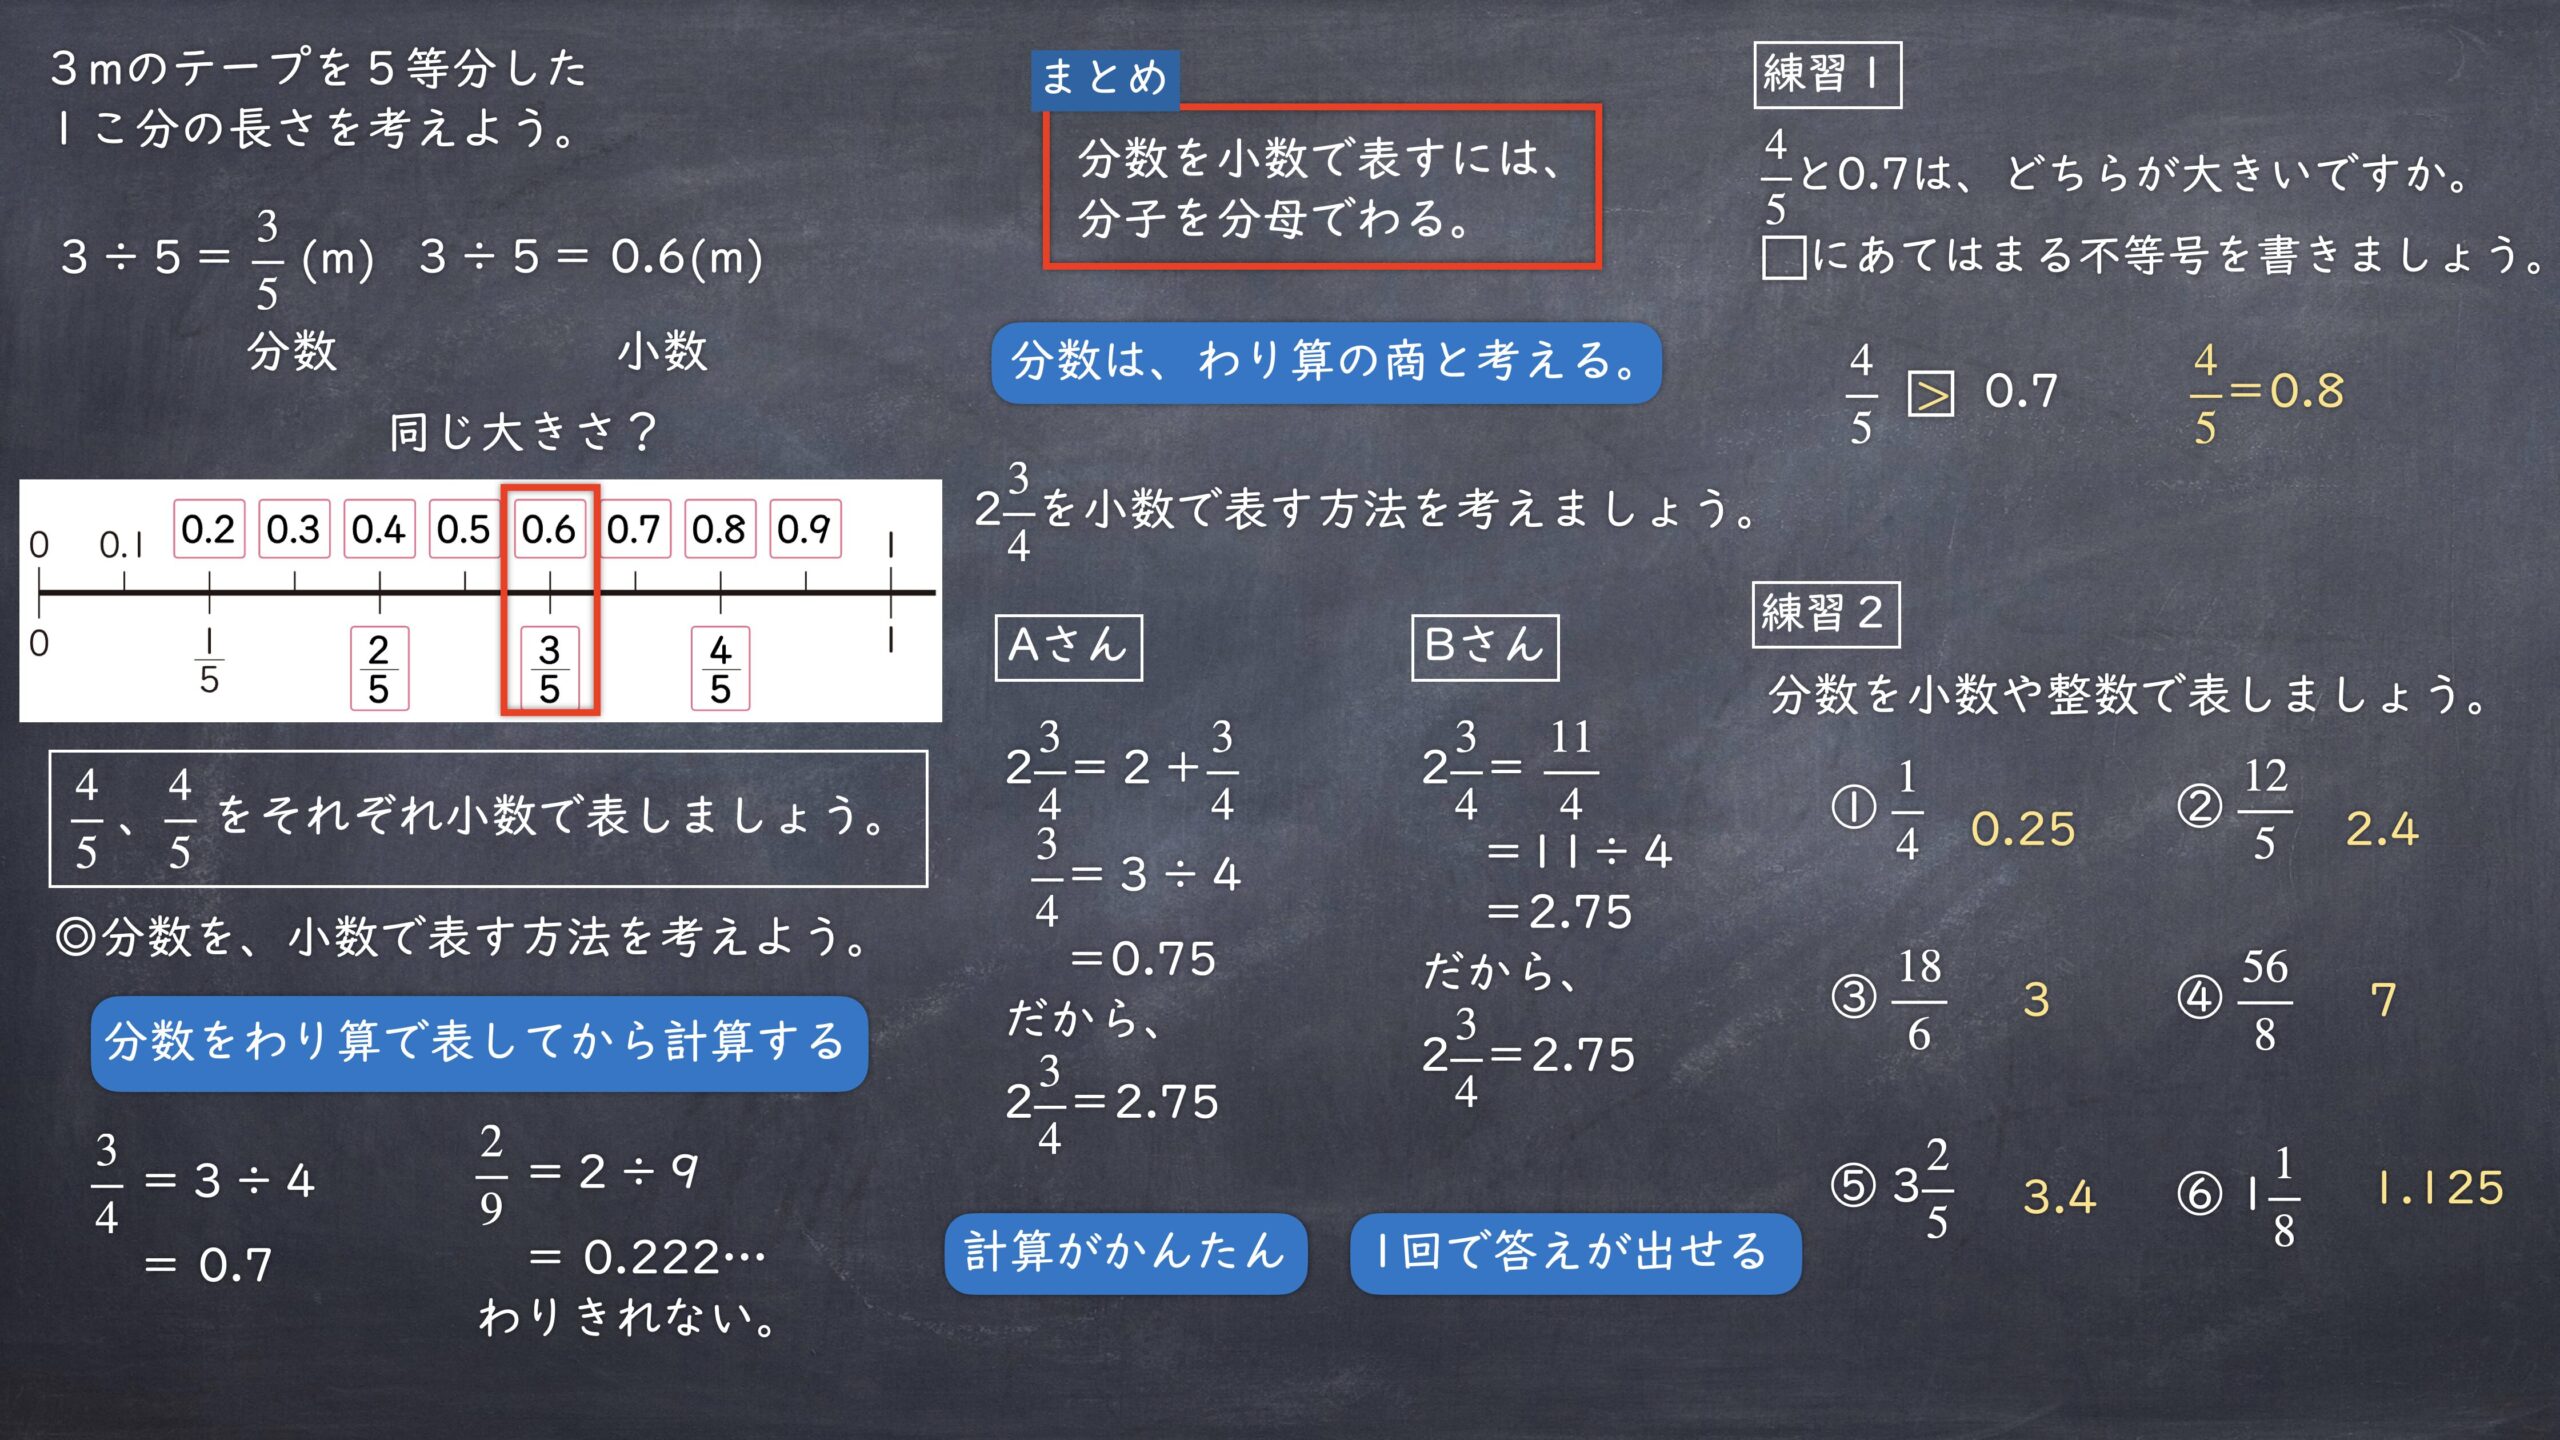 ３mのテープを５等分した
１こ分の長さを考えよう。
３÷５＝ 3/5 (m) ３÷５＝ 0.6(m)
分数 小数
同じ大きさ？
0 0.1 0.2 0.3 0.4 0.5 0.6 0.7 0.8 0.9 1
0 1/5 2/5 3/5 4/5 1
4/5、4/5 をそれぞれ小数で表しましょう。
◎分数を、小数で表す方法を考えよう。
分数をわり算で表してから計算する
3/4 ＝３÷４
＝ 0.7
2/9 ＝２÷９
＝ 0.222…
わりきれない。
まとめ
分数を小数で表すには、
分子を分母でわる。
分数は、わり算の商と考える。
2 3/4を小数で表す方法を考えましょう。
Aさん
2 3/4＝２＋3/4
3/4＝３÷４
＝0.75
だから、
2 3/4＝2.75
計算がかんたん
Bさん
2 3/4＝ 11/4
＝11÷４
＝2.75
だから、
2 3/4＝2.75
1回で答えが出せる
練習１
4/5と0.7は、どちらが大きいですか。
□にあてはまる不等号を書きましょう。
4/5 > 0.7 4/5＝0.8
練習２
分数を小数や整数で表しましょう。
① 1/4 0.25 ② 12/5 2.4
③ 18/6 3 ④ 56/8 7
⑤ 3 2/5 3.4 ⑥ 1 1/8 1.125